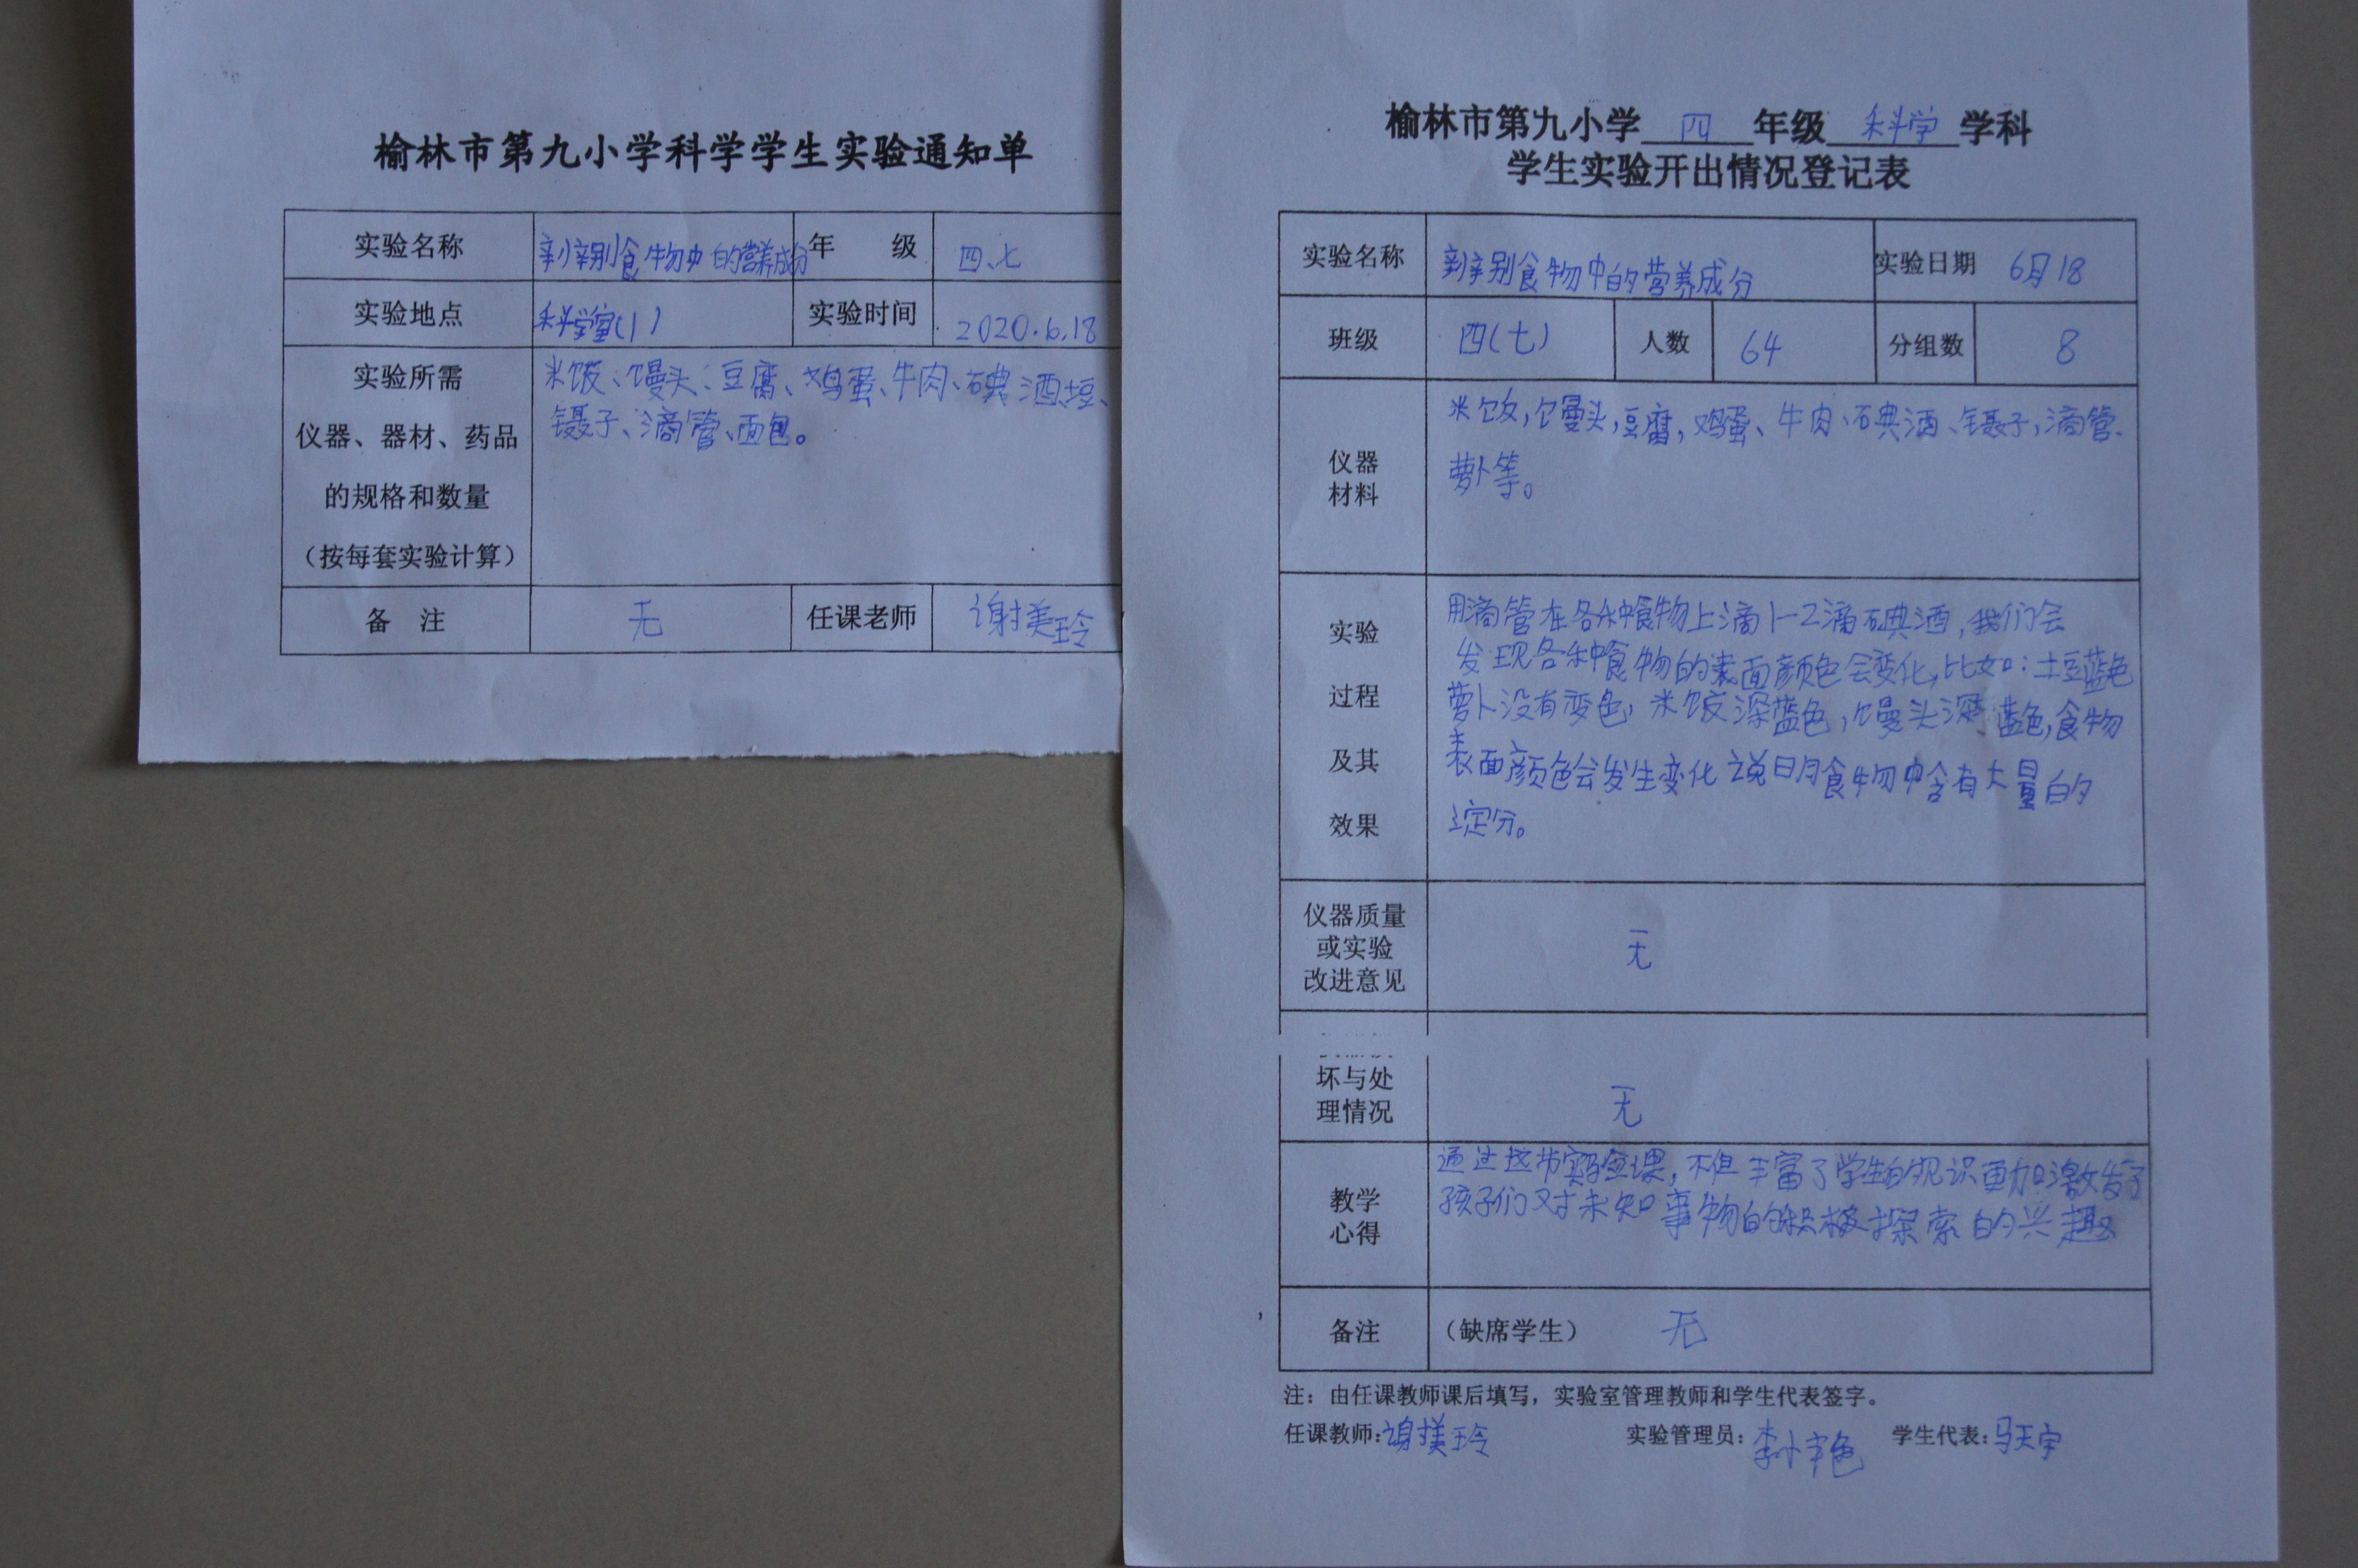 榆林市第九小学科学学生实验通知单
实验名称 辨别食物中的营养成分 年 级 四、七
实验地点 科学室(1) 实验时间 2020.6.18
实验所需
仪器、器材、药品
的规格和数量
（按每套实验计算）
米饭、馒头、豆腐、鸡蛋、牛肉、碘酒、土豆、
镊子、滴管、面包。
备 注 无 任课老师 谢美玲
榆林市第九小学 四 年级 科学 学科
学生实验开出情况登记表
实验名称 辨别食物中的营养成分 实验日期 6月18
班级 四(七) 人数 64 分组数 8
仪器
材料
米饭,馒头,豆腐,鸡蛋、牛肉、碘酒、镊子,滴管、
萝卜等。
实验
过程
及其
效果
用滴管在各种食物上滴1-2滴碘酒,我们会
发现各种食物的表面颜色会变化,比如:土豆蓝色
萝卜没有变色,米饭深蓝色,馒头深蓝色,食物
表面颜色会发生变化说明食物中含有大量的
淀分。
仪器质量
或实验
改进意见
无
坏与处
理情况
无
教学
心得
通过这节实验课,不但丰富了学生的知识更加激发了
孩子们对未知事物的积极探索的兴趣
备注 （缺席学生） 无
注：由任课教师课后填写，实验室管理教师和学生代表签字。
任课教师:谢美玲 实验管理员: 李小艳 学生代表:马天宇